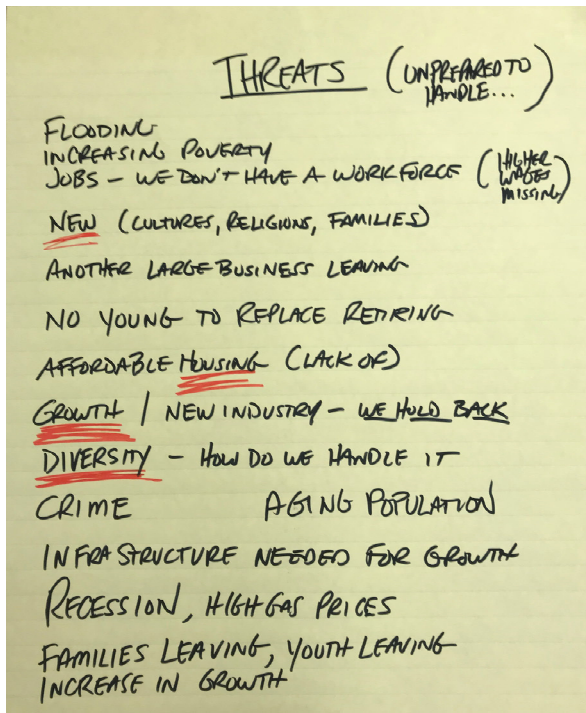 THREATS (UNPREPARED TO
HANDLE...)
FLOODING
INCREASING POVERTY
JOBS - WE DON'T HAVE A WORKFORCE (HIGHER
WAGES
MISSING)
NEW (CULTURES, RELIGIONS, FAMILIES)
ANOTHER LARGE BUSINESS LEAVING
NO YOUNG TO REPLACE RETIRING
AFFORDABLE HOUSING (LACK OF)
GROWTH / NEW INDUSTRY - WE HOLD BACK
DIVERSITY - HOW DO WE HANDLE IT
CRIME AGING POPULATION
INFRASTRUCTURE NEEDED FOR GROWTH
RECESSION, HIGH GAS PRICES
FAMILIES LEAVING, YOUTH LEAVING
INCREASE IN GROWTH